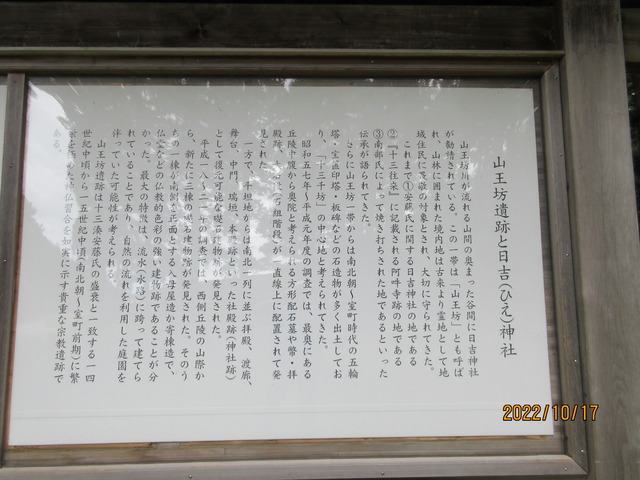 山王坊遺跡と日吉(ひえ)神社
山王坊川が流れる山間の奥まった谷間に日吉神社
が勧請されている。この一帯は「山王坊」とも呼ば
れ、山林に囲まれた境内地は古来より霊地として地
域住民に畏敬の対象とされ、大切に守られてきた。
これまで①安藤氏に関する日吉神社の地である
②『十三往来』に記載される阿吽寺跡の地である
③南部氏によって焼き打ちされた地であるといった
伝承が語られてきた。
さらに山王坊一帯からは南北朝～室町時代の五輪
塔・宝篋印塔・板碑などの石造物が多く出土してお
り、「十三千坊」の中心地と考えられてきた。
昭和五七年～平成元年度の調査では、最奥にある
丘陵中腹から奥院と考えられる方形配石墓や幣・拝
殿跡、
石組階段)が一直線上に配置されて発
見された。
一方で、平坦地からは南北一列に並ぶ拝殿、渡廊、
舞台、中門、瑞垣、本殿跡といった社殿跡(神社跡)
として復元可能な礎石建物跡が発見された。
平成一八～二一年の調査では、西側丘陵の山際か
ら、新たに三棟の礎石建物跡が発見された。そのう
ちの一棟が南側を正面とする入母屋造か寄棟造で、
仏堂などの仏教的色彩の強い建物跡であることが分
かった。最大の特徴は、流水(水路)に跨って建てら
れていることであり、自然の流れを利用した庭園を
伴っていた可能性が考えられる。
山王坊遺跡は十三湊安藤氏の盛衰と一致する一四
世紀中頃から一五世紀中頃(南北朝～室町前期)に繁
栄を極めた神仏習合を如実に示す貴重な宗教遺跡で
ある。
2022/10/17